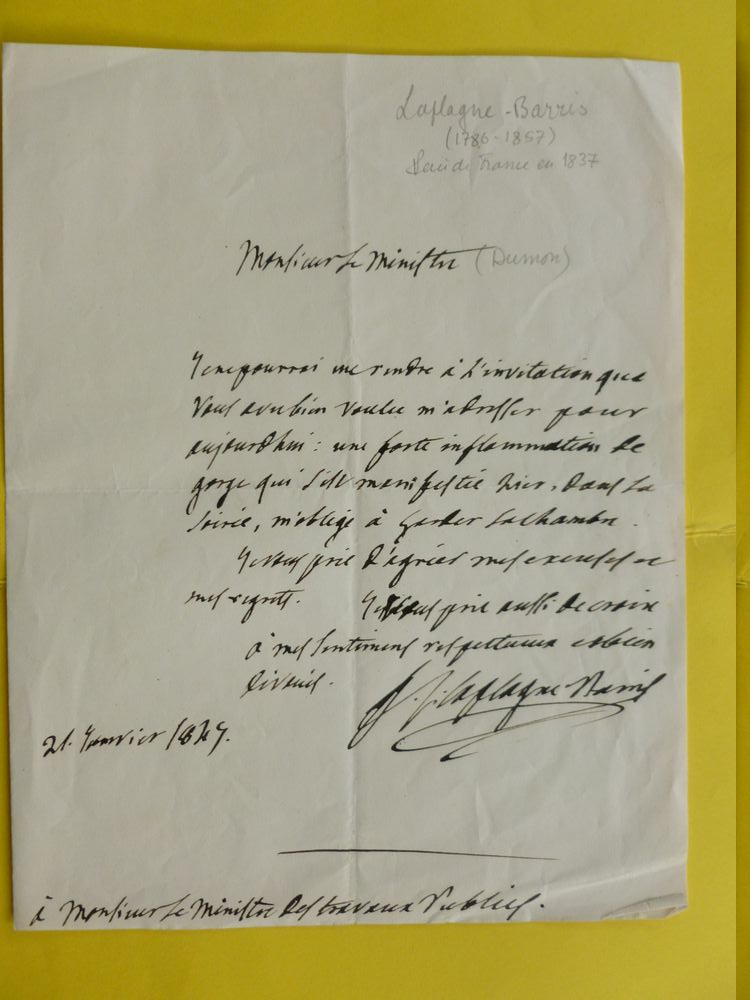 Laplagne-Barris
(1786-1857)
Pair de France en 1837
Monsieur le Ministre (Dumon)
Je ne pourrai me rendre à l'invitation que
vous avez bien voulu m'adresser pour
aujourdhui : une forte inflammation de
gorge qui s'est manifestée hier, dans la
soirée, m'oblige à garder la chambre.
Je vous prie d'agréer mes excuses et
mes regrets. Je vous prie aussi de croire
à mes sentimens respectueux et bien
dévoués.
Laplagne Barris
21. Janvier
à Monsieur le Ministre des travaux Publics.